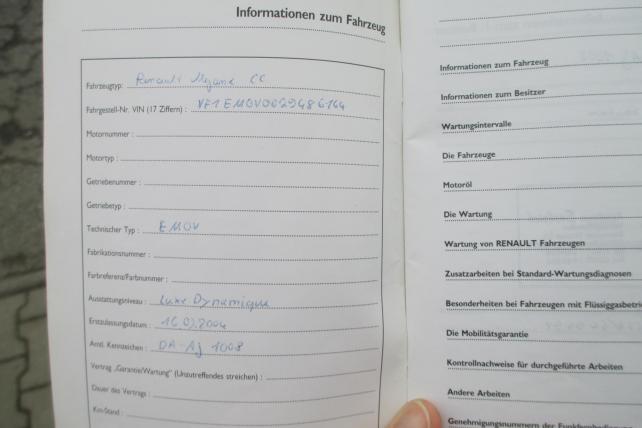 Informationen zum Fahrzeug
Fahrzeugtyp: Renault Megane CC
Fahrgestell-Nr. VIN (17 Ziffern) : VF1EM0V0029486144
Motornummer :
Motortyp :
Getriebenummer :
Getriebetyp :
Technischer Typ : EM0V
Fabrikationsnummer :
Farbreferenz/Farbnummer :
Ausstattungsniveau : Luxe Dynamique
Erstzulassungsdatum : 16.03.2004
Amtl. Kennzeichen : DA-AJ 1008
Vertrag „Garantie/Wartung" (Unzutreffendes streichen) :
Dauer des Vertrags :
Km-Stand :
Informationen zum Fahrzeug
Informationen zum Besitzer
Wartungsintervalle
Die Fahrzeuge
Motoröl
Die Wartung
Wartung von RENAULT Fahrzeugen
Zusatzarbeiten bei Standard-Wartungsdiagnosen
Besonderheiten bei Fahrzeugen mit Flüssiggasbetri
Die Mobilitätsgarantie
Kontrollnachweise für durchgeführte Arbeiten
Andere Arbeiten
Genehmigungsnummern der Funkfernbedienung